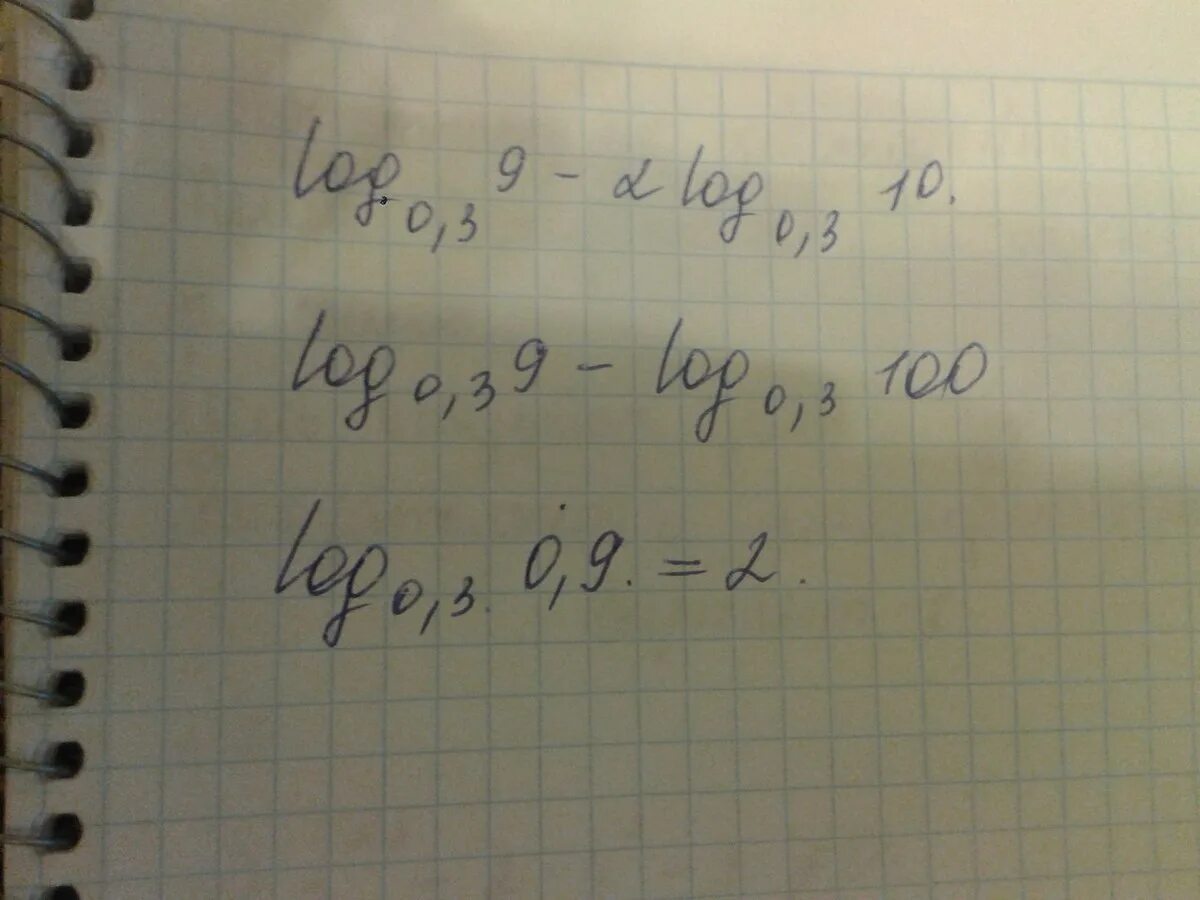 log₀,₃ 9 - 2 log₀,₃ 10.
log₀,₃ 9 - log₀,₃ 100
log₀,₃. 0,9. = 2.